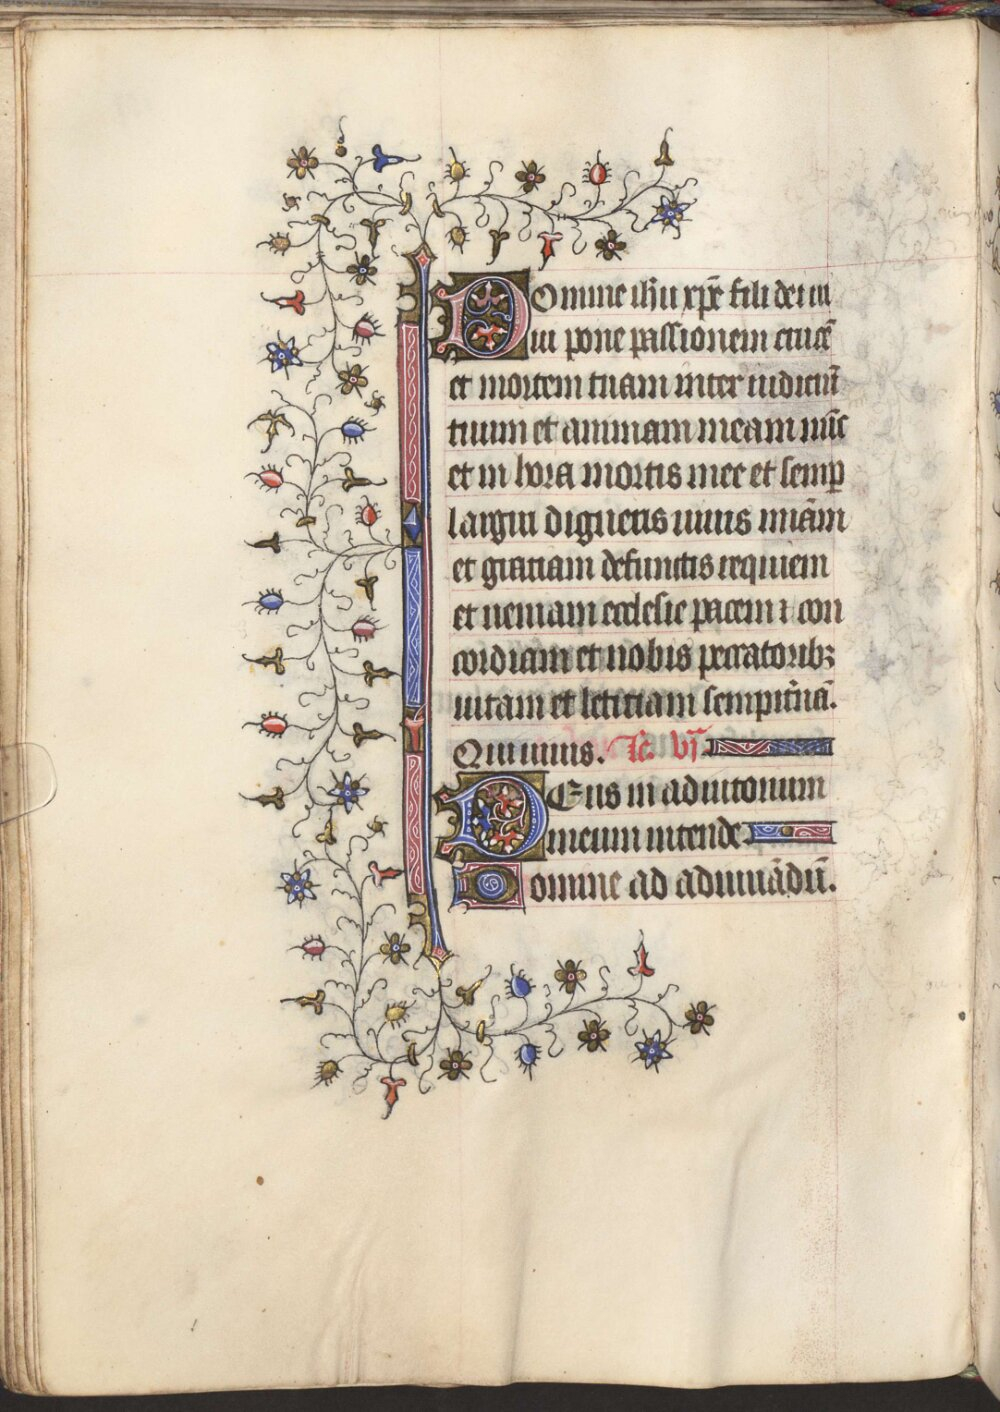 Domine ihu xpe fili dei ui
ui pone passionem crucē
et mortem tuam inter iudiciū
tuum et animam meam nūc
et in hora mortis mee et semp
largiri digneris uiuis miām
et gratiam defunctis requiem
et ueniam ecclesie pacem ⁊ con
cordiam et nobis peccatoribꝫ
uitam et leticiam sempit̄nā.
Qui uiuis.
Deus in adiutorium
meum intende
Domine ad adiuuādū.